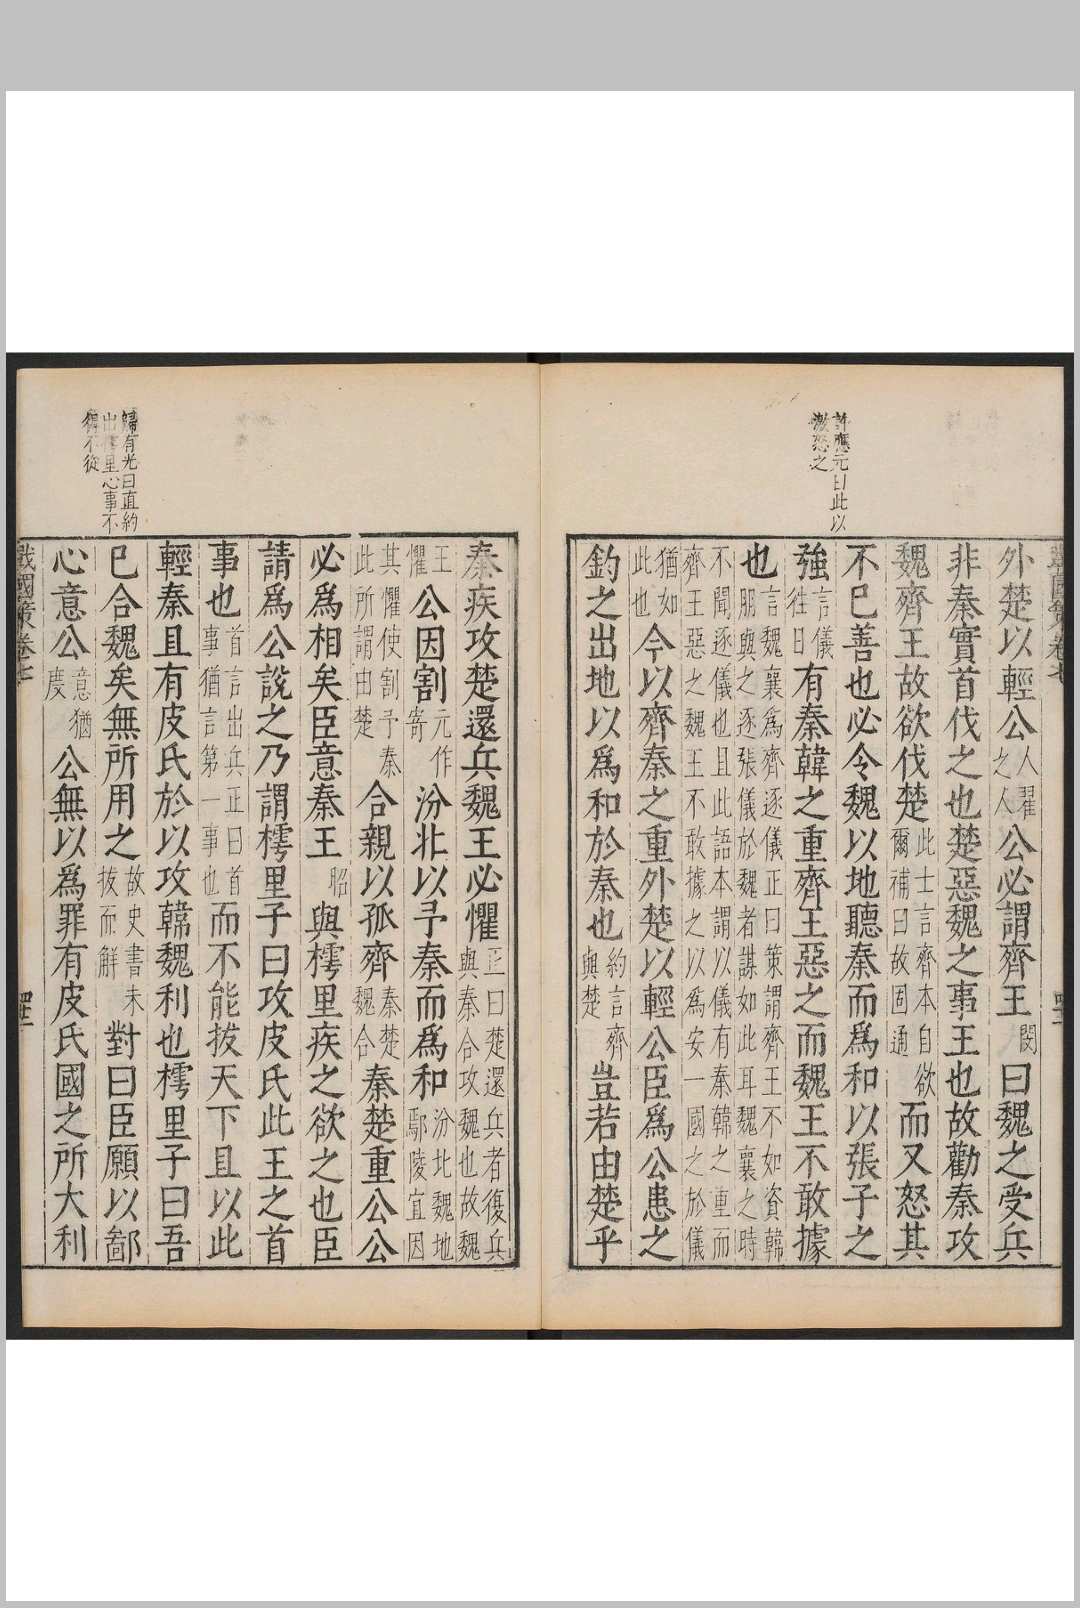 許應元曰此以
激怒之
戰國策卷七
外楚以輕公人翟之人公必謂齊王閔曰魏之受兵
非秦實首伐之也楚惡魏之事王也故勸秦攻
魏齊王故欲伐楚此士言齊本自欲爾補曰故固通而又怒其
不已善也必令魏以地聽秦而爲和以張子之
強言儀往日有秦韓之重齊王惡之而魏王不敢據
也言魏襄爲齊逐儀正曰策謂齊王不如資韓朋與之逐張儀於魏者謀如此耳魏襄之時
不聞逐儀也且此語本謂以儀有秦韓之重而齊王惡之魏王不敢據之以爲安一國之於儀
猶如此也今以齊秦之重外楚以輕公臣爲公患之
鈞之出地以爲和於秦也約言齊與楚豈若由楚乎
歸有光曰直約
出樗里心事不
得不從
秦疾攻楚還兵魏王必懼正曰楚還兵者復與秦合攻魏也故魏
王懼公因割元作寄汾北以予秦而爲和汾北魏地鄢陵宜因
其懼使割予秦此所謂由楚合親以孤齊秦楚魏合秦楚重公公
必爲相矣臣意秦王昭與樗里疾之欲之也臣
請爲公說之乃謂樗里子曰攻皮氏此王之首
事也首言出兵正曰首事猶言第一事也而不能拔天下且以此
輕秦且有皮氏於以攻韓魏利也樗里子曰吾
已合魏矣無所用之故史書未拔而解對曰臣願以鄙
心意公意猶度公無以爲罪有皮氏國之所大利
戰國策卷七